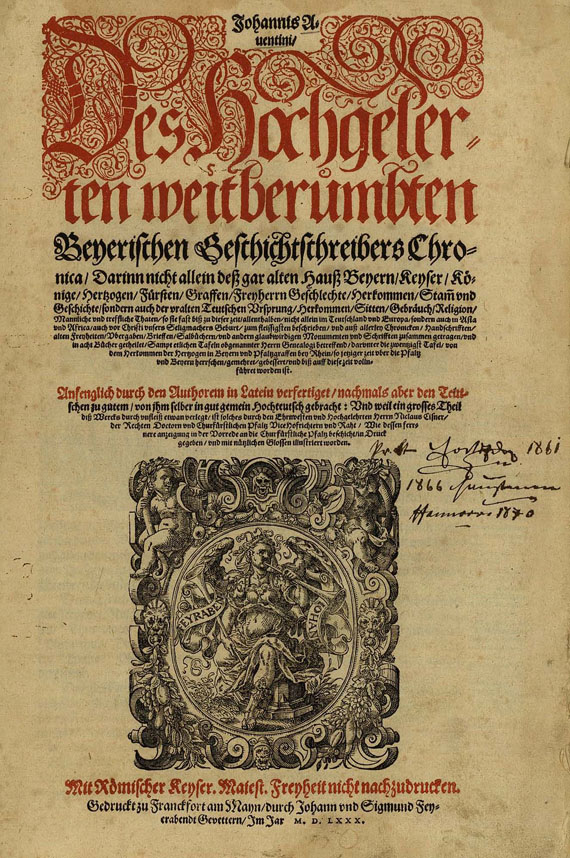 Johannis A-
uentini/
Des Hochgeler-
ten weitberümbten
Beyerischen Geschichtschreibers Chro-
nica/ Darinn nicht allein deß gar alten Hauß Beyern/ Keyser/ Kö-
nige/ Hertzogen/ Fürsten/ Graffen/ Freyherrn Geschlechte/ Herkommen/ Stam̃ vnd
Geschichte/ sondern auch der vralten Teutschen Vrsprung/ Herkommen/ Sitten/ Gebräuch/ Religion/
Mannliche vnd treffliche Thaten/ so sie fast biß zu dieser zeit/ allenthalben/ nicht allein im Teuschland vnd Europa/ sondern auch in Asia
vnd Africa/ auch vor Christi vnsers Seligmachers Geburt/ zum fleissigsten beschrieben/ vnd auß allerley Chronicken/ Handschrifften/
alten Freyheiten/ Vbergaben/ Brieffen/ Salbüchern/ vnd andern glaubwirdigen Monumenten vnd Schrifften zusammen getragen/ vnd
in acht Bücher getheilet/ Sampt etlichen Tafeln obgenannter Herrn Genealogi betreffend/ darunter die zwentzigst Tafel/ von
dem Herkommen der Hertzogen in Beyern vnd Pfaltzgraffen bey Rhein/ so jetziger zeit vber die Pfaltz
vnd Beyern herrschen/ gemehret/ gebessert/ vnd biß auff diese zeit volln-
führet worden ist.
Anfenglich durch den Authorem in Latein verfertiget/ nachmals aber den Teut-
schen zu gutem/ von jhm selber in gut gemein Hochteutsch gebracht: Vnd weil ein grosses Theil
diß Wercks durch vnfleiß etwan verlegt/ ist solches durch den Ehrnvesten vnd Hochgelehrten Herrn Niclaus Cißner/
der Rechten Doctorn vnd Churfürstlichen Pfaltz ViceHofrichtern vnd Raht/ Wie dessen fern-
nere anzeigung in der Vorrede an die Churfürstliche Pfaltz beschicht/ in Druck
gegeben/ vnd mit nützlichen Glossen illustriert worden.
1861
1866
Hannover 1870
EYRABEN
IOHAN
Mit Römischer Keyser. Maiest. Freyheit nicht nachzudrucken.
Gedruckt zu Franckfort am Mayn/ durch Johann vnd Sigmund Fey-
erabendt Gevettern/ Im Jar M. D. LXXX.